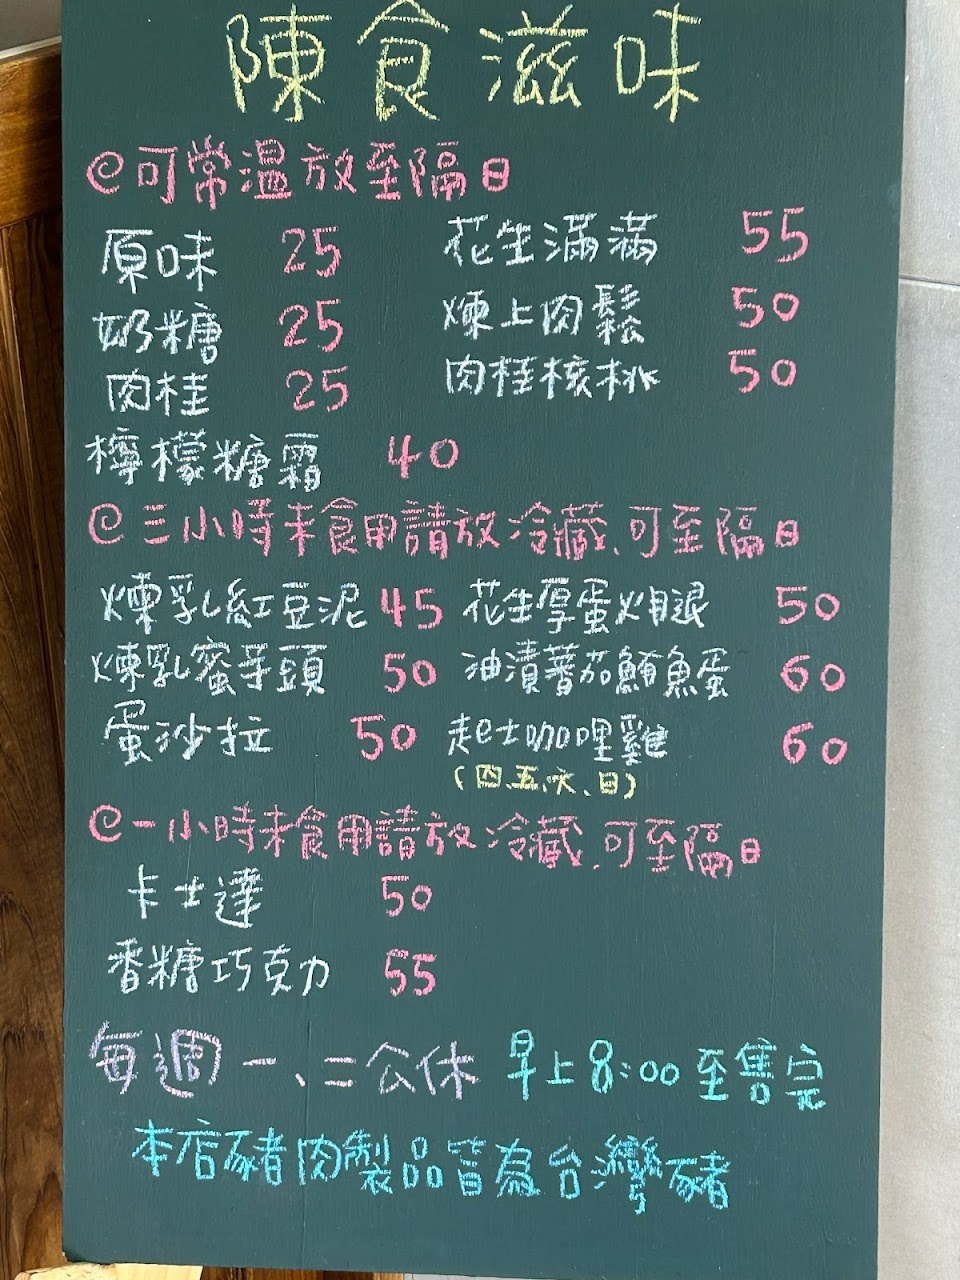 陳食滋味
@可常温放至隔日
原味 25 花生滿滿 55
奶糖 25 煉上肉鬆 50
肉桂 25 肉桂核桃 50
檸檬糖霜 40
@三小時未食用請放冷藏、可至隔日
煉乳紅豆泥 45 花生厚蛋火腿 50
煉乳蜜芋頭 50 油漬蕃茄鮪魚蛋 60
蛋沙拉 50 起士咖哩雞 60
(四、五、六、日)
@一小時未食用請放冷藏、可至隔日
卡士達 50
香糖巧克力 55
每週一、二公休 早上8:00至售完
本店豬肉製品皆為台灣豬